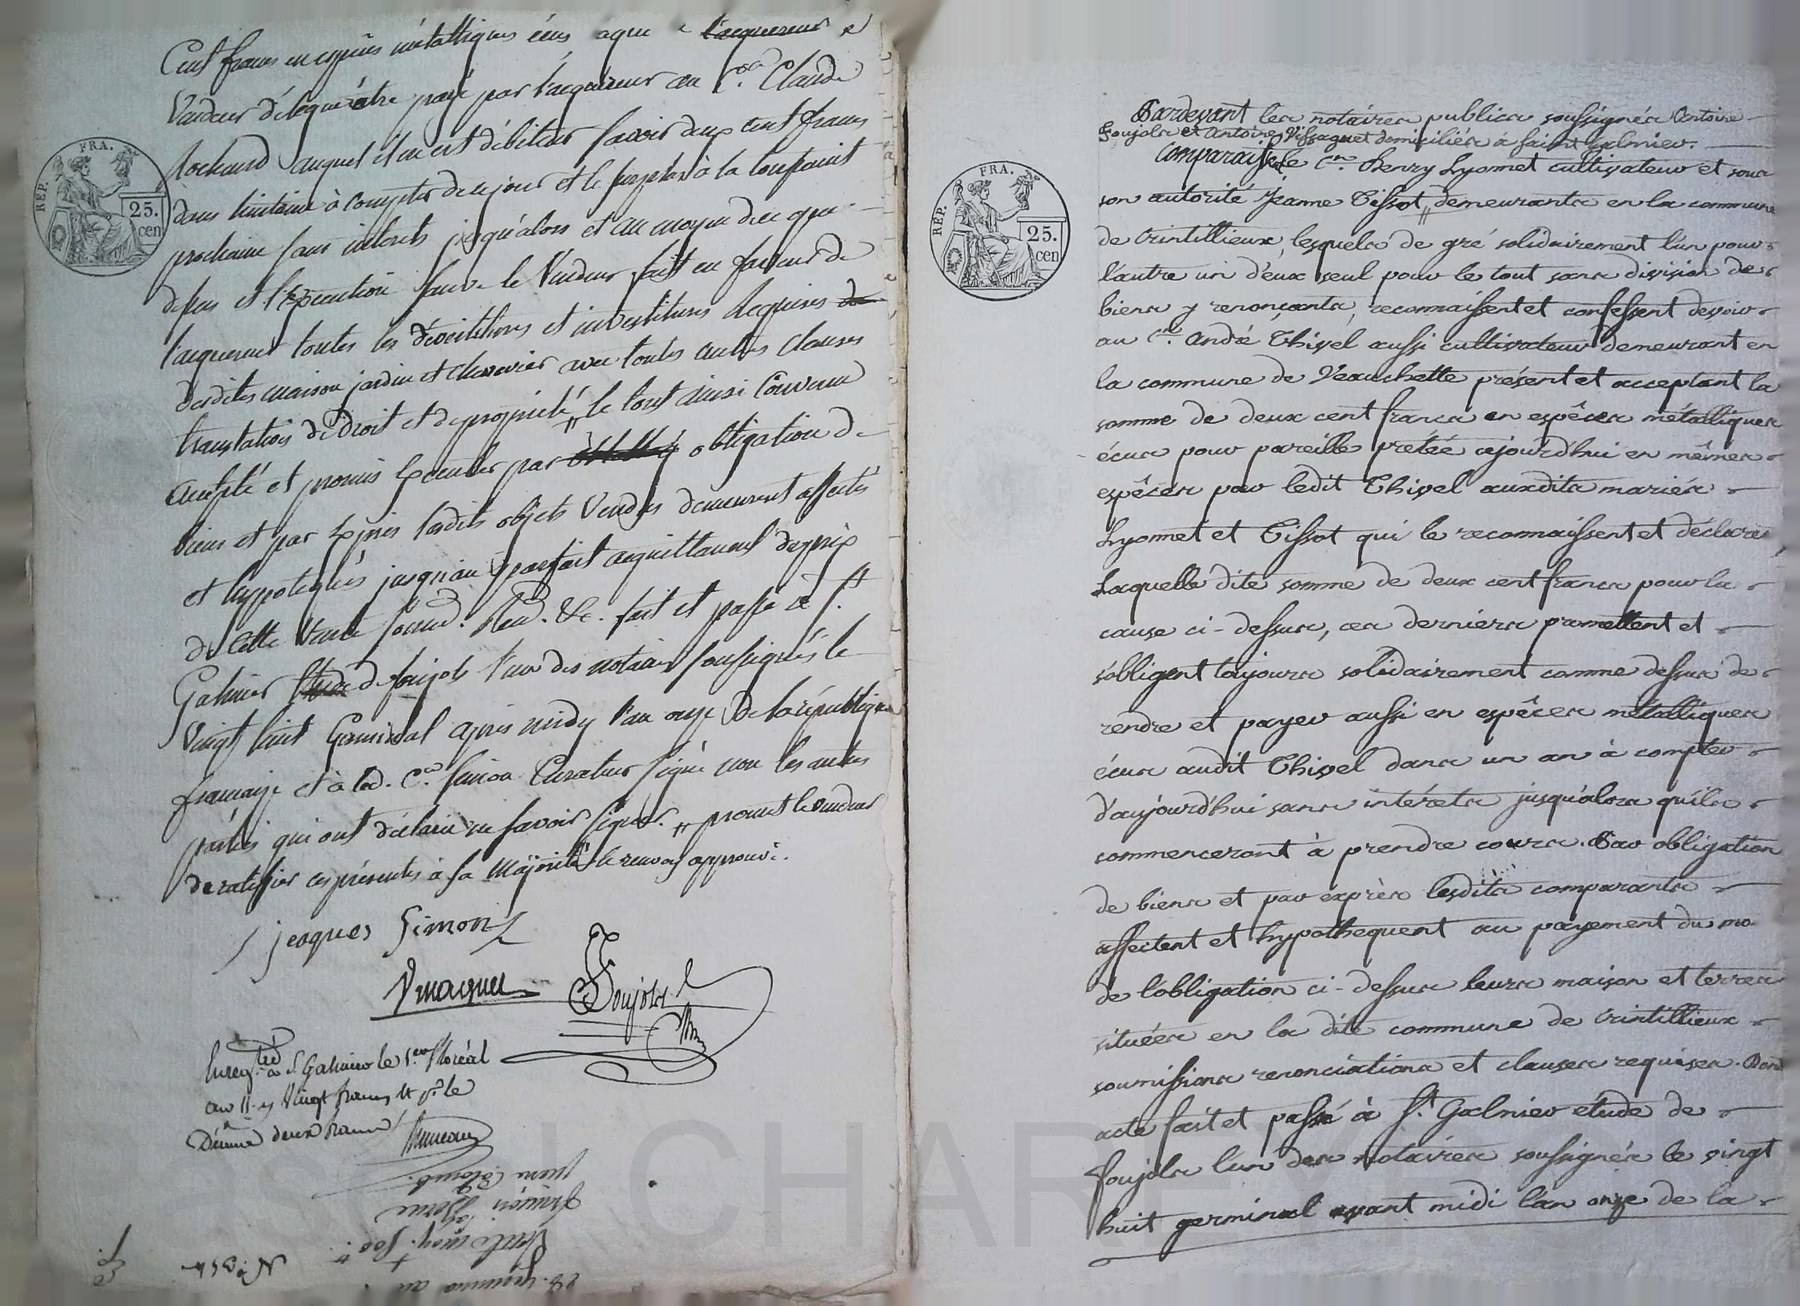 Cent francs en espèces métalliques écus a que l'acquereur
Vendeur d'être payé par l'acquéreur au C.en Claude
Rochard auquel il en est débiteur savoir deux cent francs
dans huitaine à compter de ce jour et le surplus à la toussaint
prochaine sans intérêts jusqu'alors et au moyen de ce que
dessus et l'exécution suive le Vendeur fait en faveur de
l'acquereur toutes les dévestitures et investitures Requises
desdites maison jardin et chenevier avec toutes autres clauses
translatives de droit et de propriété " le tout ainsi Convenu
accepté et promis Exécuter par obligation de
biens et par Exprès lesdits objets Vendus demeurent affectés
et hypotequés jusqu'au parfait acquittement du prix
de cette Vente soumd. Rend. &c. fait et passé à S.t
Galmier Etude de soujols l'un des notaires soussignés le
Vingt huit Germinal après midy l'an onze de la république
française et à led. C.en Simon Curateur signé non les autres
parties qui ont déclaré ne savoir signer. " promet le vendeur
de ratifier ces présentes à sa Majorité le renvoy approuvé.
jeaques Simon
Vissaguet
Soujols
N.re
Enreg.tré à S.t Galmier le 1.er floréal
an 11. reçu Vingt francs
Dixième deux francs
RÉP. FRA.
25.
cen
Pardevant les notaires publics soussignés Antoine
Soujols et Antoine Vissaguet domiciliés à saint galmier.
comparaissent le C.en Henry Lyonnet cultivateur et sous
son autorité Jeanne Tissot " demeurants en la commune
de Crintillieux, lesquels de gré solidairement l'un pour
l'autre un d'eux seul pour le tout sans division de
biens y renonçants, reconnaissent et confessent devoir
au C.en André Thivel aussi cultivateur demeurant en
la commune de Veauchette présent et acceptant la
somme de deux cent francs en espèces métalliques
écus pour pareille pretée cejourd'hui en mêmes
espèces par ledit Thivel auxdits mariés
Lyonnet et Tissot qui le reconnaissent et déclarent
Laquelle dite somme de deux cent francs pour la
cause ci-dessus, ces derniers promettent et
s'obligent toujours solidairement comme dessus de
rendre et payer aussi en espèces métalliques
écus audit Thivel dans un an à compter
d'aujourd'hui sans intérêts jusqu'alors qu'ils
commenceront à prendre cours. Par obligation
de biens et par exprès lesdits comparants
affectent et hypothequent au payement du mo
de l'obligation ci-dessus leurs maison et terres
situées en la dite commune de Crintillieux
soumissions renonciations et clauses requises. Dont
acte fait et passé à S.t Galmier etude de
soujols l'un des notaires soussignés le vingt
huit germinal avant midi l'an onze de la
RÉP. FRA.
25.
cen